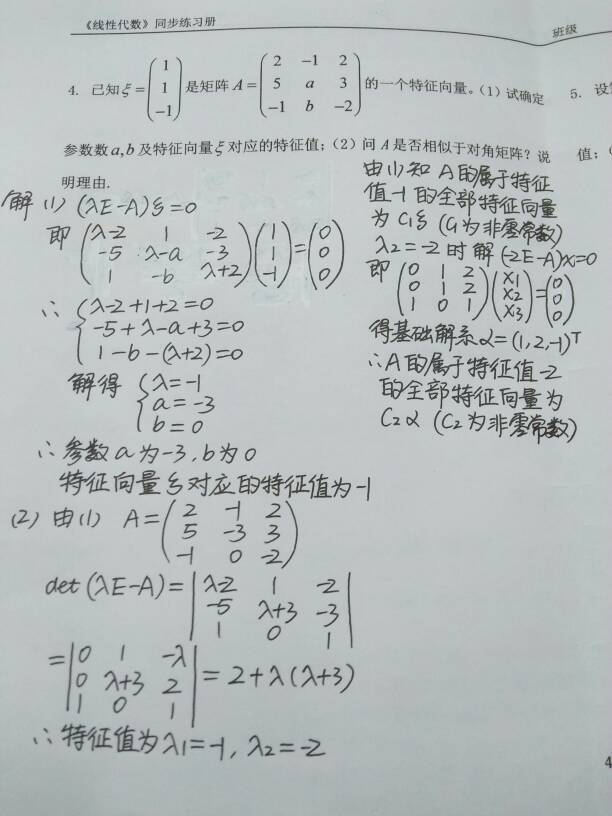 《线性代数》同步练习册
班级
4. 已知ξ=(1 1 -1)是矩阵A=(2 -1 2
5 a 3
-1 b -2)的一个特征向量。(1) 试确定
参数数a,b及特征向量ξ对应的特征值; (2) 问A是否相似于对角矩阵? 说
明理由.
5. 设
值: (
解 (1) (λE-A)ξ=0
即 (λ-2 1 -2
-5 λ-a -3
1 -b λ+2)(1 1 -1)=(0 0 0)
∴ {λ-2+1+2=0
-5+λ-a+3=0
1-b-(λ+2)=0
解得 {λ=-1
a=-3
b=0
∴参数a为-3, b为0
特征向量ξ对应的特征值为-1
(2) 由(1) A=(2 -1 2
5 -3 3
-1 0 -2)
det(λE-A)=|λ-2 1 -2
-5 λ+3 -3
1 0 1|
=|0 1 -λ
0 λ+3 2
1 0 1|=2+λ(λ+3)
∴特征值为λ1=-1, λ2=-2
由(1)知 A的属于特征
值-1的全部特征向量
为C1ξ (C1为非零常数)
λ2=-2时解(-2E-A)x=0
即 (0 1 2
0 1 2
1 0 1)(x1 x2 x3)=(0 0 0)
得基础解系α=(1,2,-1)T
∴A的属于特征值-2
的全部特征向量为
C2α (C2为非零常数)
4